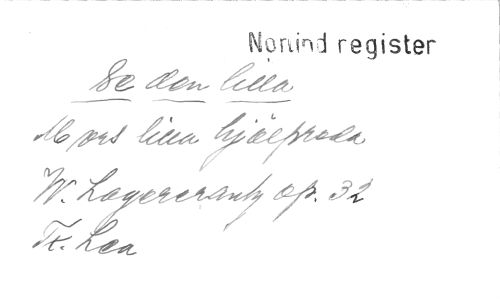 Nonind register
Se den lilla
Mors lilla hjälpreda
W. Lagercrantz op. 32
Tr. Lea